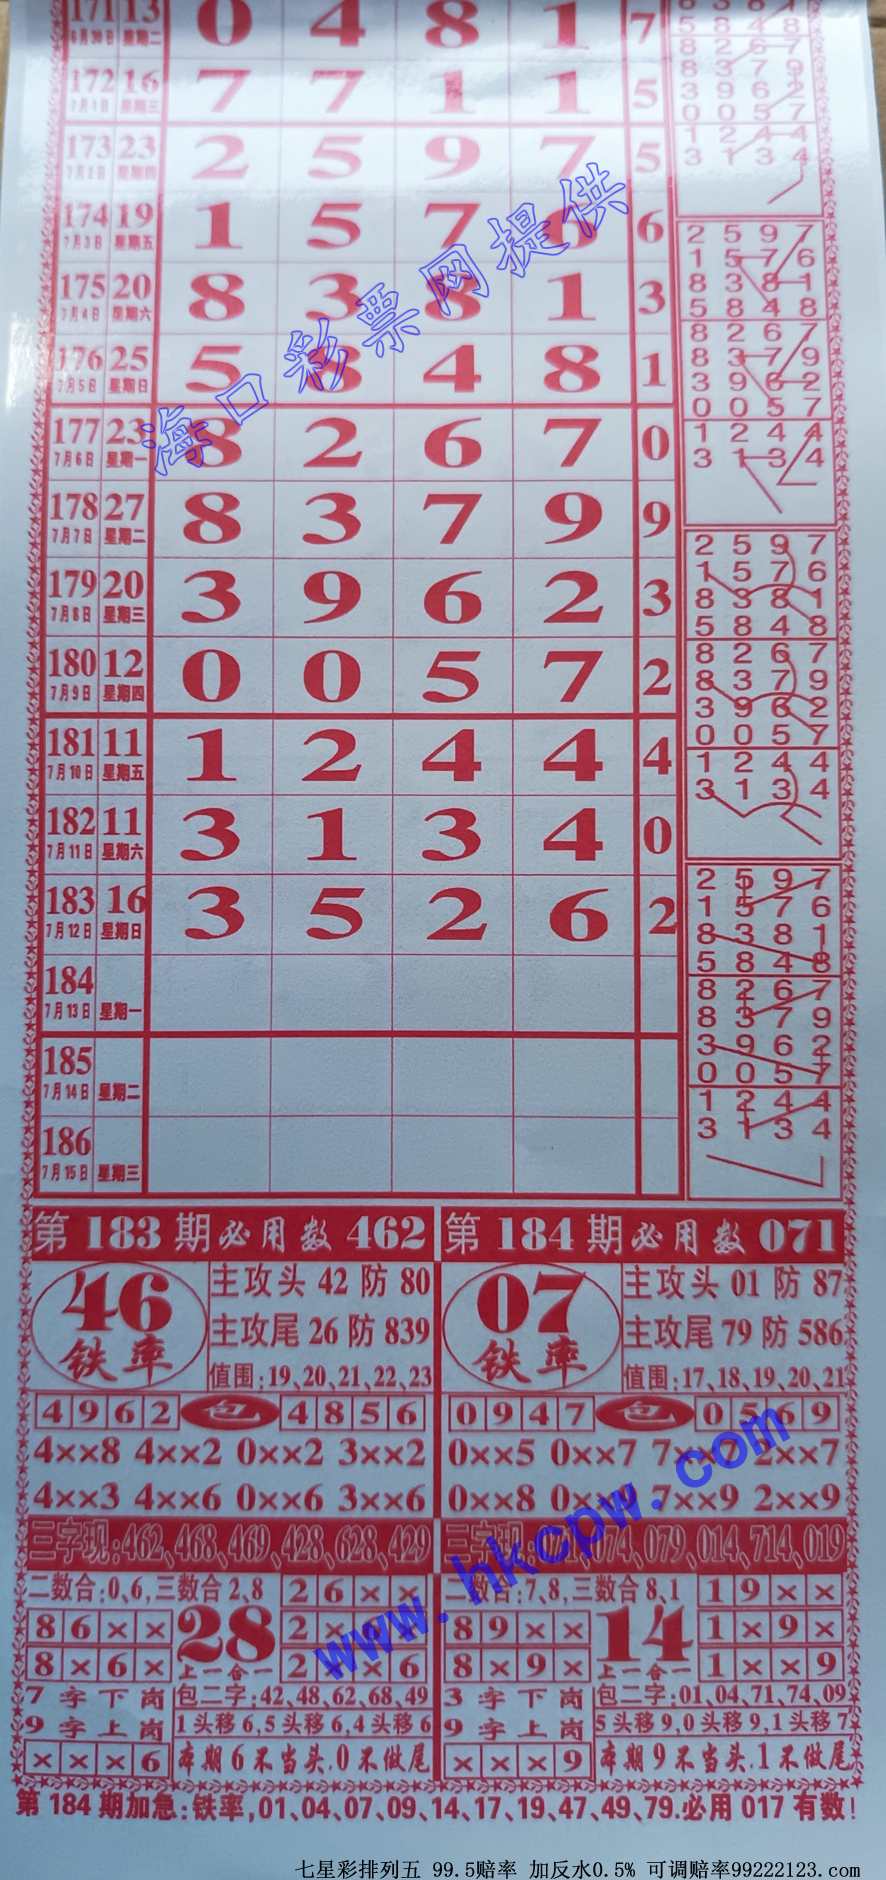 171 13 0 4 8 1 7
6月30日 星期二
172 16 7 7 1 1 5
7月1日 星期三
173 23 2 5 9 7 5
7月2日 星期四
174 19 1 5 7 6 6
7月3日 星期五
175 20 8 3 8 1 3
7月4日 星期六
176 25 5 8 4 8 1
7月5日 星期日
177 23 8 2 6 7 0
7月6日 星期一
178 27 8 3 7 9 9
7月7日 星期二
179 20 3 9 6 2 3
7月8日 星期三
180 12 0 0 5 7 2
7月9日 星期四
181 11 1 2 4 4 4
7月10日 星期五
182 11 3 1 3 4 0
7月11日 星期六
183 16 3 5 2 6 2
7月12日 星期日
184
7月13日 星期一
185
7月14日 星期二
186
7月15日 星期三
5 8 4 8
8 2 6 7
8 3 7 9
3 9 6 2
0 0 5 7
1 2 4 4
3 1 3 4
2 5 9 7
1 5 7 6
8 3 8 1
5 8 4 8
8 2 6 7
8 3 7 9
3 9 6 2
0 0 5 7
1 2 4 4
3 1 3 4
2 5 9 7
1 5 7 6
8 3 8 1
5 8 4 8
8 2 6 7
8 3 7 9
3 9 6 2
0 0 5 7
1 2 4 4
3 1 3 4
2 5 9 7
1 5 7 6
8 3 8 1
5 8 4 8
8 2 6 7
8 3 7 9
3 9 6 2
0 0 5 7
1 2 4 4
3 1 3 4
海口彩票网提供
第183期必用数462
46
铁率
主攻头42防80
主攻尾26防839
值围:19、20、21、22、23
4962 包 4856
4××8 4××2 0××2 3××2
4××3 4××6 0××6 3××6
三字现:462,468,469,428,628,429
二数合:0,6,三数合2,8
26××
86××
28
8×6×
上一合一
2××6
7字下岗
包二字:42,48,62,68,49
9字上岗
1头移6,5头移6,4头移6
×××6
本期6不当头.0不做尾
第184期必用数071
07
铁率
主攻头01防87
主攻尾79防586
值围:17、18、19、20、21
0947 包 0569
0××5 0××7 7××7 2××7
0××8 0××9 7××9 2××9
三字现:071,074,079,014,714,019
二数合:7,8,三数合8,1
19××
89××
14
1×9×
8×9×
上一合一
1××9
3字下岗
包二字:01,04,71,74,09
9字上岗
5头移9,0头移9,1头移7
×××9
本期9不当头.1不做尾
www.hkcpw.com
第184期加急:铁率,01、04、07、09、14、17、19、47、49、79.必用017有数!
七星彩排列五 99.5赔率 加反水0.5% 可调赔率99222123.com